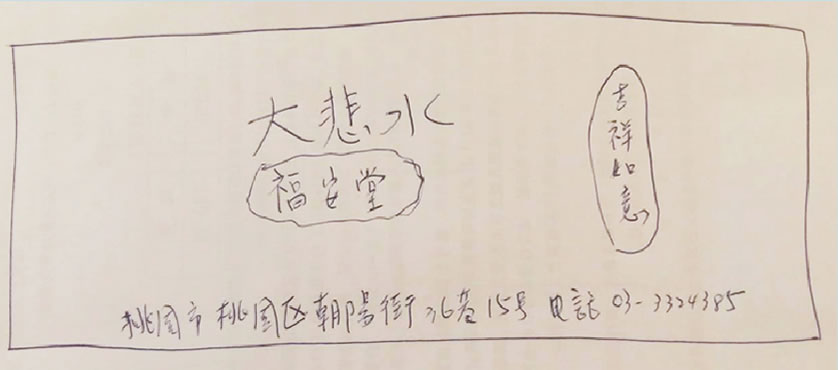 大悲水
福安堂
吉祥如意
桃園市桃園區朝陽街26巷15号 電話 03-3324385